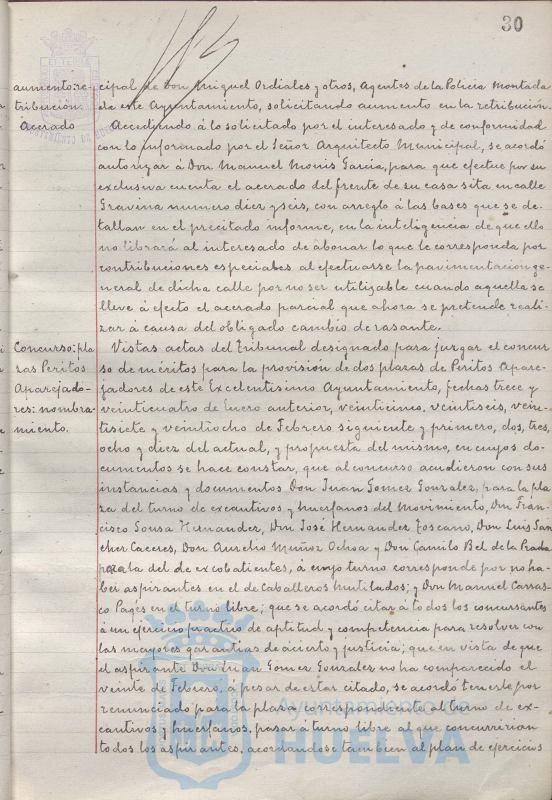 30
aumento: re-
tribución.
Acerado
cipal de Don Miguel Ordiales y otros, Agentes de la Policía montada
de este Ayuntamiento, solicitando aumento en la retribución
Accediendo á lo solicitado por el interesado y de conformidad
con lo informado por el Señor Arquitecto Municipal, se acordó
autorizar á Don Manuel Monis Garcia, para que efectue por su
exclusiva cuenta el acerado del frente de su casa sita en calle
Gravina numero diez y seis, con arreglo á las bases que se de-
tallan en el precitado informe, en la inteligencia de que ello
no librará al interesado de abonar lo que le corresponda por
contribuciones especiales al efectuarse la pavimentacion ge-
neral de dicha calle por no ser utilizable cuando aquella se
lleve á efecto el acerado parcial que ahora se pretende reali-
zar á causa del obligado cambio de rasante.
Concurso: pla
zas Peritos
Aparejado-
res: nombra-
miento.
Vistas actas del Tribunal designado para juzgar el concur
so de méritos para la provisión de dos plazas de Peritos Apare-
jadores de este Excelentisimo Ayuntamiento, fechas trece y
veinticuatro de Enero anterior, veinticinco, veintiseis, vein-
tisiete y veintiocho de Febrero siguiente y primero, dos, tres,
ocho y diez del actual, y propuesta del mismo, en cuyos do-
cumentos se hace constar, que al concurso acudieron con sus
instancias y documentos Don Juan Gomez Gonzalez, para la pla
za del turno de excautivos y huerfanos del Movimiento, Don Fran-
cisco Sousa Hernandez, Don José Hernandez Toscano, Don Luis San
chez Caceres, Don Aurelio Muñoz Ochoa y Don Camilo Bel de la Prada
para la del de excobatientes, á cuyo turno corresponde por no ha-
ber aspirantes en el de Caballeros Mutilados; y Don Manuel Carras-
co Pagés en el turno libre; que se acordó citar á todos los concursantes
á un ejercicio practico de aptitud y competencia para resolver con
las mayores garantias de acierto y justicia; que en vista de que
el aspirante Don Juan Gomez Gonzales no ha comparecido el
veinte de Febrero, á pesar de estar citado, se acordó tenerle por
renunciado para la plaza correspondiente al turno de ex-
cautivos y huerfanos, pasar á turno libre al que concurrirían
todos los aspirantes, acordandose tambien el plan de ejercicios
Ayuntamiento de
HUELVA